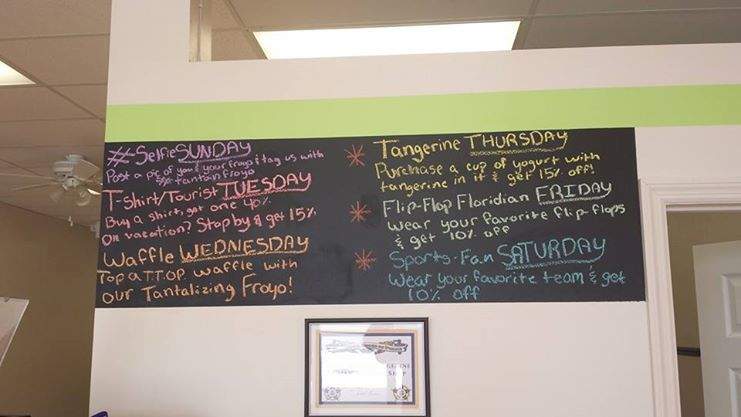 #SelfieSUNDAY
Post a pic of you & your froyo & tag us with
fantanfroyo
T-Shirt/Tourist TUESDAY
Buy a shirt, get one 40%.
On vacation? Stop by & get 15%.
Waffle WEDNESDAY
Top a T.T.OP. waffle with
our Tantalizing Froyo!
* Tangerine THURSDAY
Purchase a cup of yogurt with
tangerine in it & get 15% off!
* Flip-Flop Floridian FRIDAY
Wear your favorite flip flops
& get 10% off
* Sports-Fan SATURDAY
Wear your favorite team & get
10% off